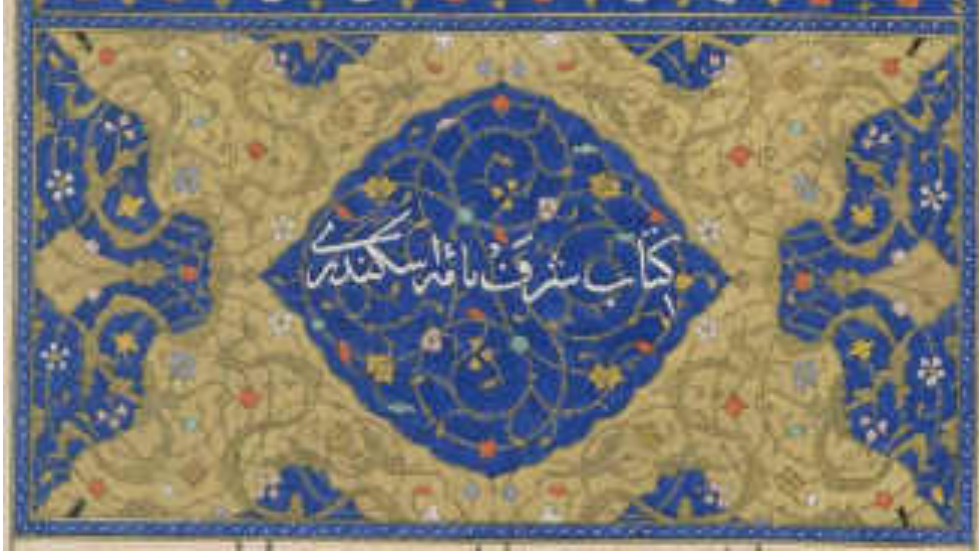 کتاب شرف نامهٔ اسکندری